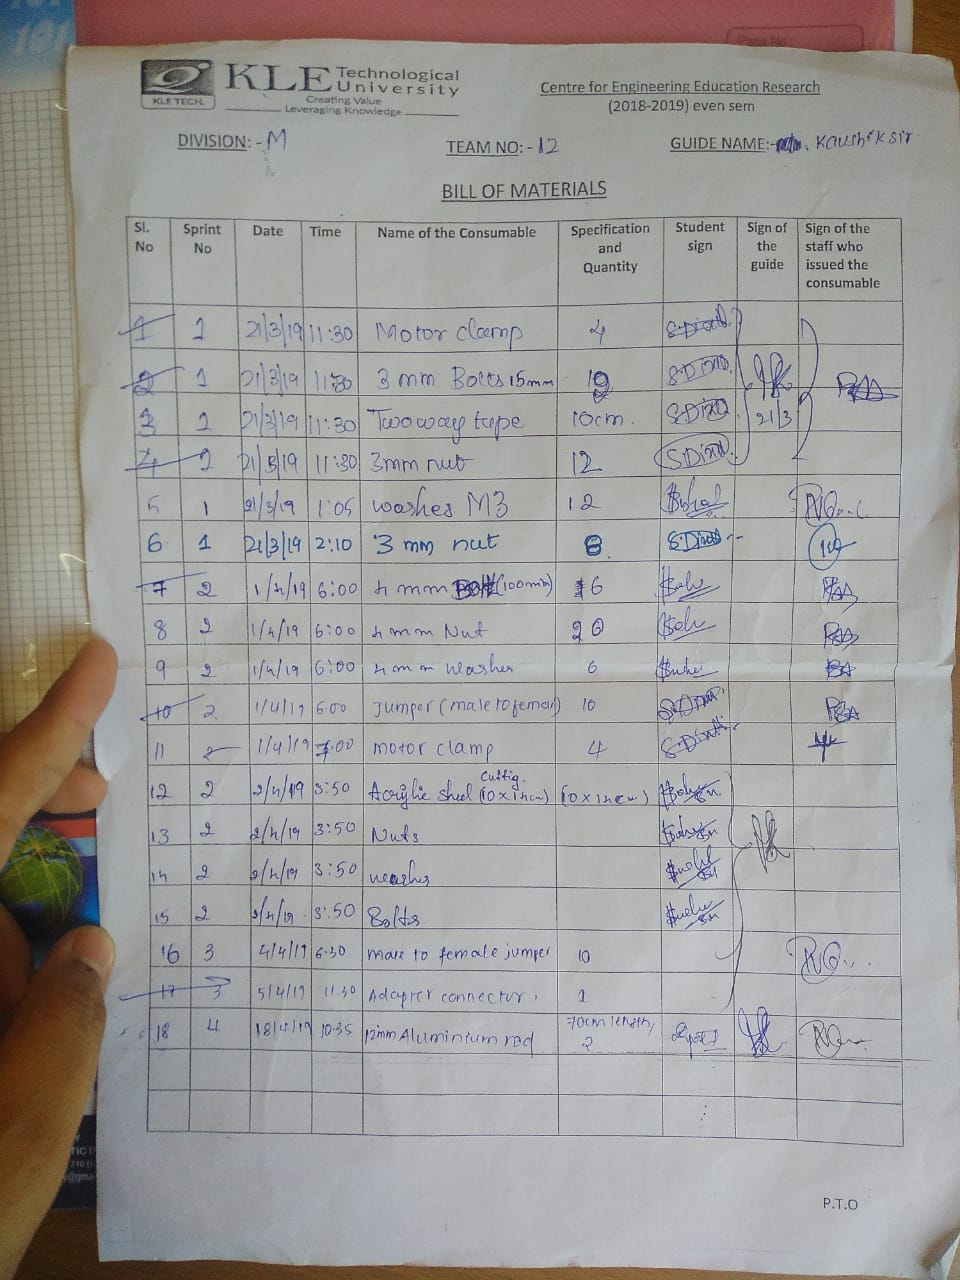 KLE TECH.
KLE Technological University
Creating Value
Leveraging Knowledge
Centre for Engineering Education Research
(2018-2019) even sem
DIVISION:-M
TEAM NO:-12
GUIDE NAME:- Kaushik sir
BILL OF MATERIALS
Sl. No Sprint No Date Time Name of the Consumable Specification and Quantity Student sign Sign of the guide Sign of the staff who issued the consumable
1 1 21/3/19 11:30 Motor clamp 4
2 1 21/3/19 11:30 3 mm Bolts 15mm
3 1 21/3/19 11:30 Two way tape 10cm.
21/3
4 1 21/3/19 11:30 3mm nut 12
5 1 21/3/19 1:05 washes M3 12
6 1 21/3/19 2:10 3 mm nut 8
7 2 1/4/19 6:00 4 mm Bolt (100mm) 6
8 2 1/4/19 6:00 4 mm Nut 20
9 2 1/4/19 6:00 4 mm washer 6
10 2 1/4/19 6:00 Jumper (male to female) 10
11 2 1/4/19 7:00 motor clamp 4
12 2 2/4/19 3:50 Acrylic sheet cuttig.
13 2 2/4/19 3:50 Nuts
14 2 2/4/19 3:50 washer
15 2 2/4/19 3:50 Bolts
16 3 4/4/19 6.30 male to female jumper 10
17 3 5/4/19 11.30 Adapter connector. 1
18 4 18/4/19 10.35 12mm Aluminium rod 70cm length, 2
P.T.O